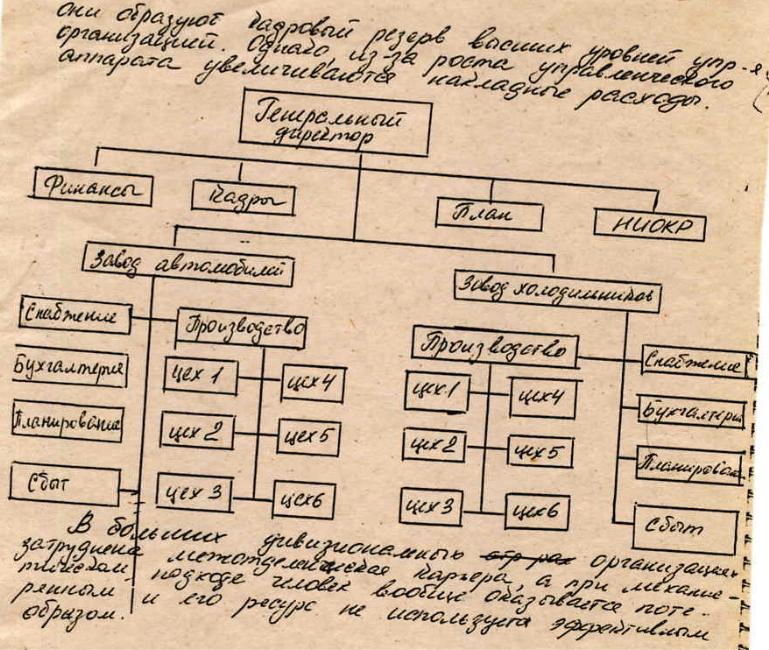 они образуют кадровый резерв высших уровней упр-я
организацией. Однако, из-за роста управленческого
аппарата увеличиваются накладные расходы.
Генеральный
директор
Финансы
Кадры
План
НИОКР
Завод автомобилей
Завод холодильников
Снабжение
Производство
Бухгалтерия
цех 1
цех 4
Планирование
цех 2
цех 5
Сбыт
цех 3
цех 6
Производство
Снабжение
цех 1
цех 4
Бухгалтерия
цех 2
цех 5
Планирован
цех 3
цех 6
Сбыт
В больших дивизиональных организациях
затруднена межотделенческая карьера, а при механис-
тическом подходе человек вообще оказывается поте-
рянным, и его ресурс не используется эффективным
образом.